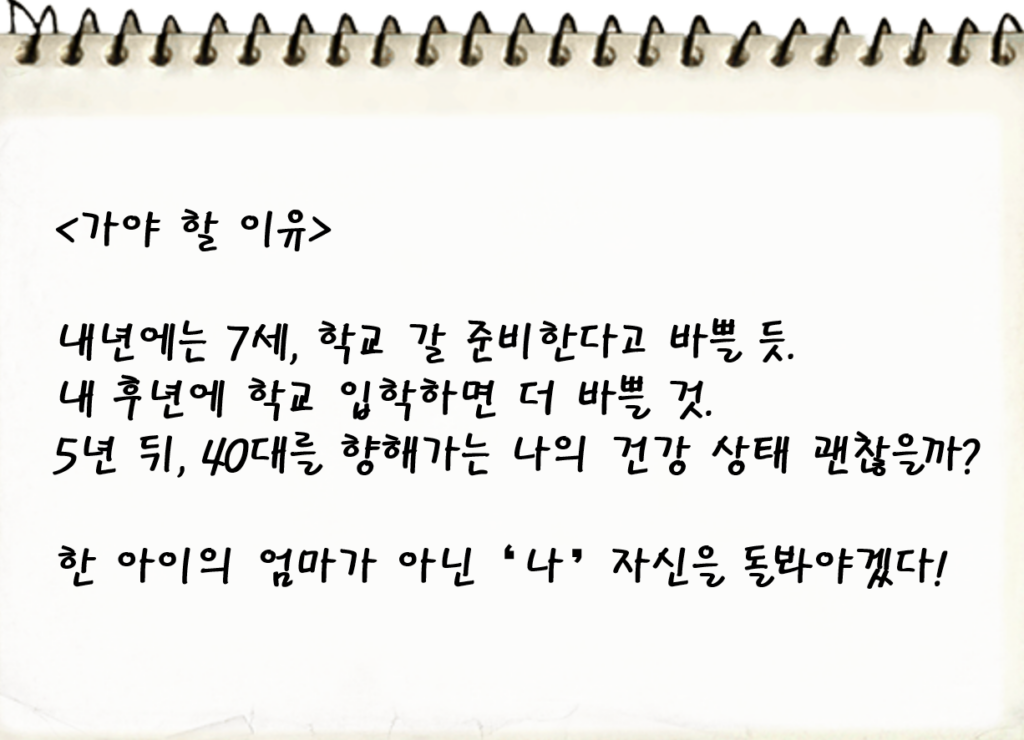 <가야 할 이유>
내년에는 7세, 학교 갈 준비한다고 바쁠 듯.
내 후년에 학교 입학하면 더 바쁠 것.
5년 뒤, 40대를 향해가는 나의 건강 상태 괜찮을까?
한 아이의 엄마가 아닌 ‘나’ 자신을 돌봐야겠다!